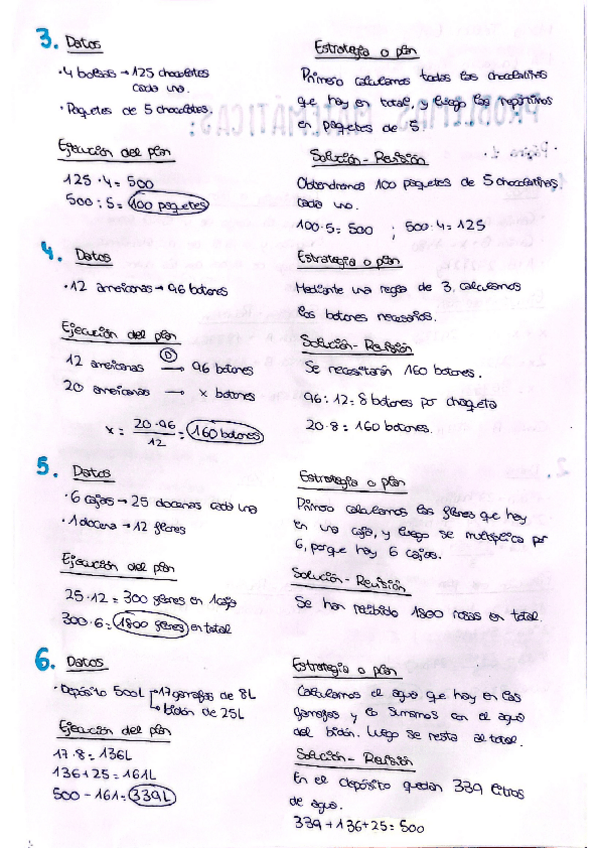 3. Datos
· 4 bolsas → 125 chocolates
cada una.
· Paquetes de 5 chocolates.
Estrategia o plan
Primero calculamos todas las chocolatinas
que hay en total, y luego las repartimos
en paquetes de 5.
Ejecución del plan
125 · 4 = 500
500 : 5 = 100 paquetes
Solución - Revisión
Obtendremos 100 paquetes de 5 chocolatinas
cada uno.
100 · 5 = 500 ; 500 : 4 = 125
4. Datos
· 12 americanas → 96 botones
Estrategia o plan
Mediante una regla de 3, calculamos
los botones necesarios.
Ejecución del plan
D
12 americanas → 96 botones
20 americanas → x botones
x = 20 · 96 / 12 = 160 botones
Solución - Revisión
Se necesitarán 160 botones.
96 : 12 = 8 botones por chaqueta
20 · 8 = 160 botones.
5. Datos
· 6 cajas → 25 docenas cada una
· 1 docena → 12 flores
Estrategia o plan
Primero calculamos las flores que hay
en una caja, y luego se multiplica por
6, porque hay 6 cajas.
Ejecución del plan
25 · 12 = 300 flores en 1 caja
300 · 6 = 1800 flores en total
Solución - Revisión
Se han recibido 1800 rosas en total.
6. Datos
· Depósito 500L → 17 garrafas de 8L
→ bidón de 25L
Estrategia o plan
Calculamos el agua que hay en las
garrafas y lo sumamos con el agua
del bidón. Luego se resta al total.
Ejecución del plan
17 · 8 = 136L
136 + 25 = 161L
500 - 161 = 339L
Solución - Revisión
En el depósito quedan 339 litros
de agua.
339 + 136 + 25 = 500